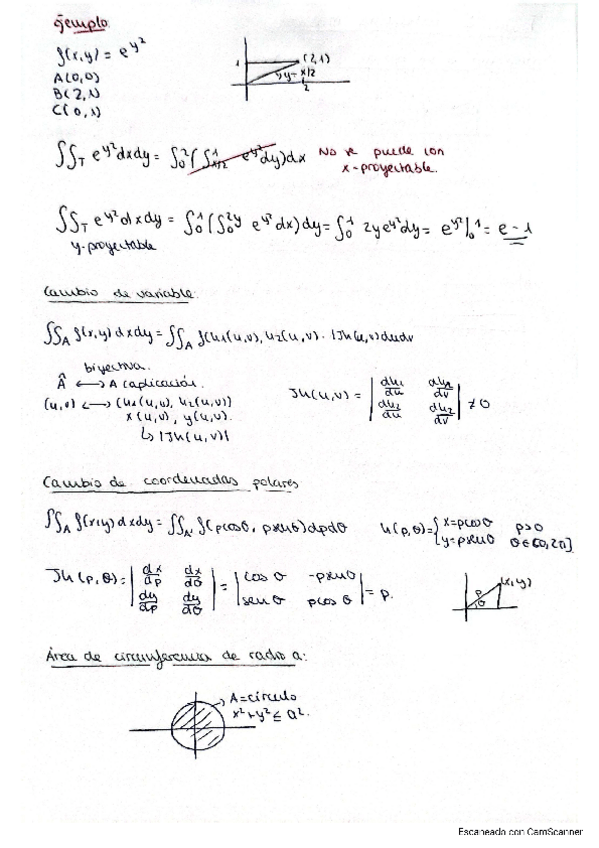 Ejemplo
f(x,y) = e^{y²}
A(0,0)
B(2,1)
C(0,1)
1
(2,1)
y=x/2
2
∬_T e^{y²}dxdy = ∫_0^2(∫_{x/2}^1 e^{y²}dy)dx No se puede con
x-proyectable.
∬_T e^{y²}dxdy = ∫_0^1(∫_0^{2y} e^{y²}dx)dy = ∫_0^1 2ye^{y²}dy = e^{y²}|_0^1 = e-1
y-proyectable
Cambio de variable:
∬_A f(x,y)dxdy = ∬_A f(u1(u,v), u2(u,v)·|Jh(u,v)dudv
biyectiva.
Â ⟷ A (aplicación.
(u,v) ⟷ (u1(u,v), u2(u,v))
x(u,v), y(u,v).
↳ |Jh(u,v)|
Jh(u,v) = | du1/du du1/dv |
| du2/du du2/dv | ≠ 0
Cambio de coordenadas polares
∬_A f(x,y)dxdy = ∬_A' f(ρcosθ, ρsenθ)dρdθ h(ρ,θ)={x=ρcosθ ρ>0
y=ρsenθ θ∈[0,2π]
Jh(ρ,θ) = | dx/dρ dx/dθ | = | cosθ -ρsenθ | = ρ.
| dy/dρ dy/dθ | | senθ ρcosθ |
(x,y)
ρ
θ
Área de circunferencia de radio a:
A=círculo
x²+y² ≤ a².
Escaneado con CamScanner